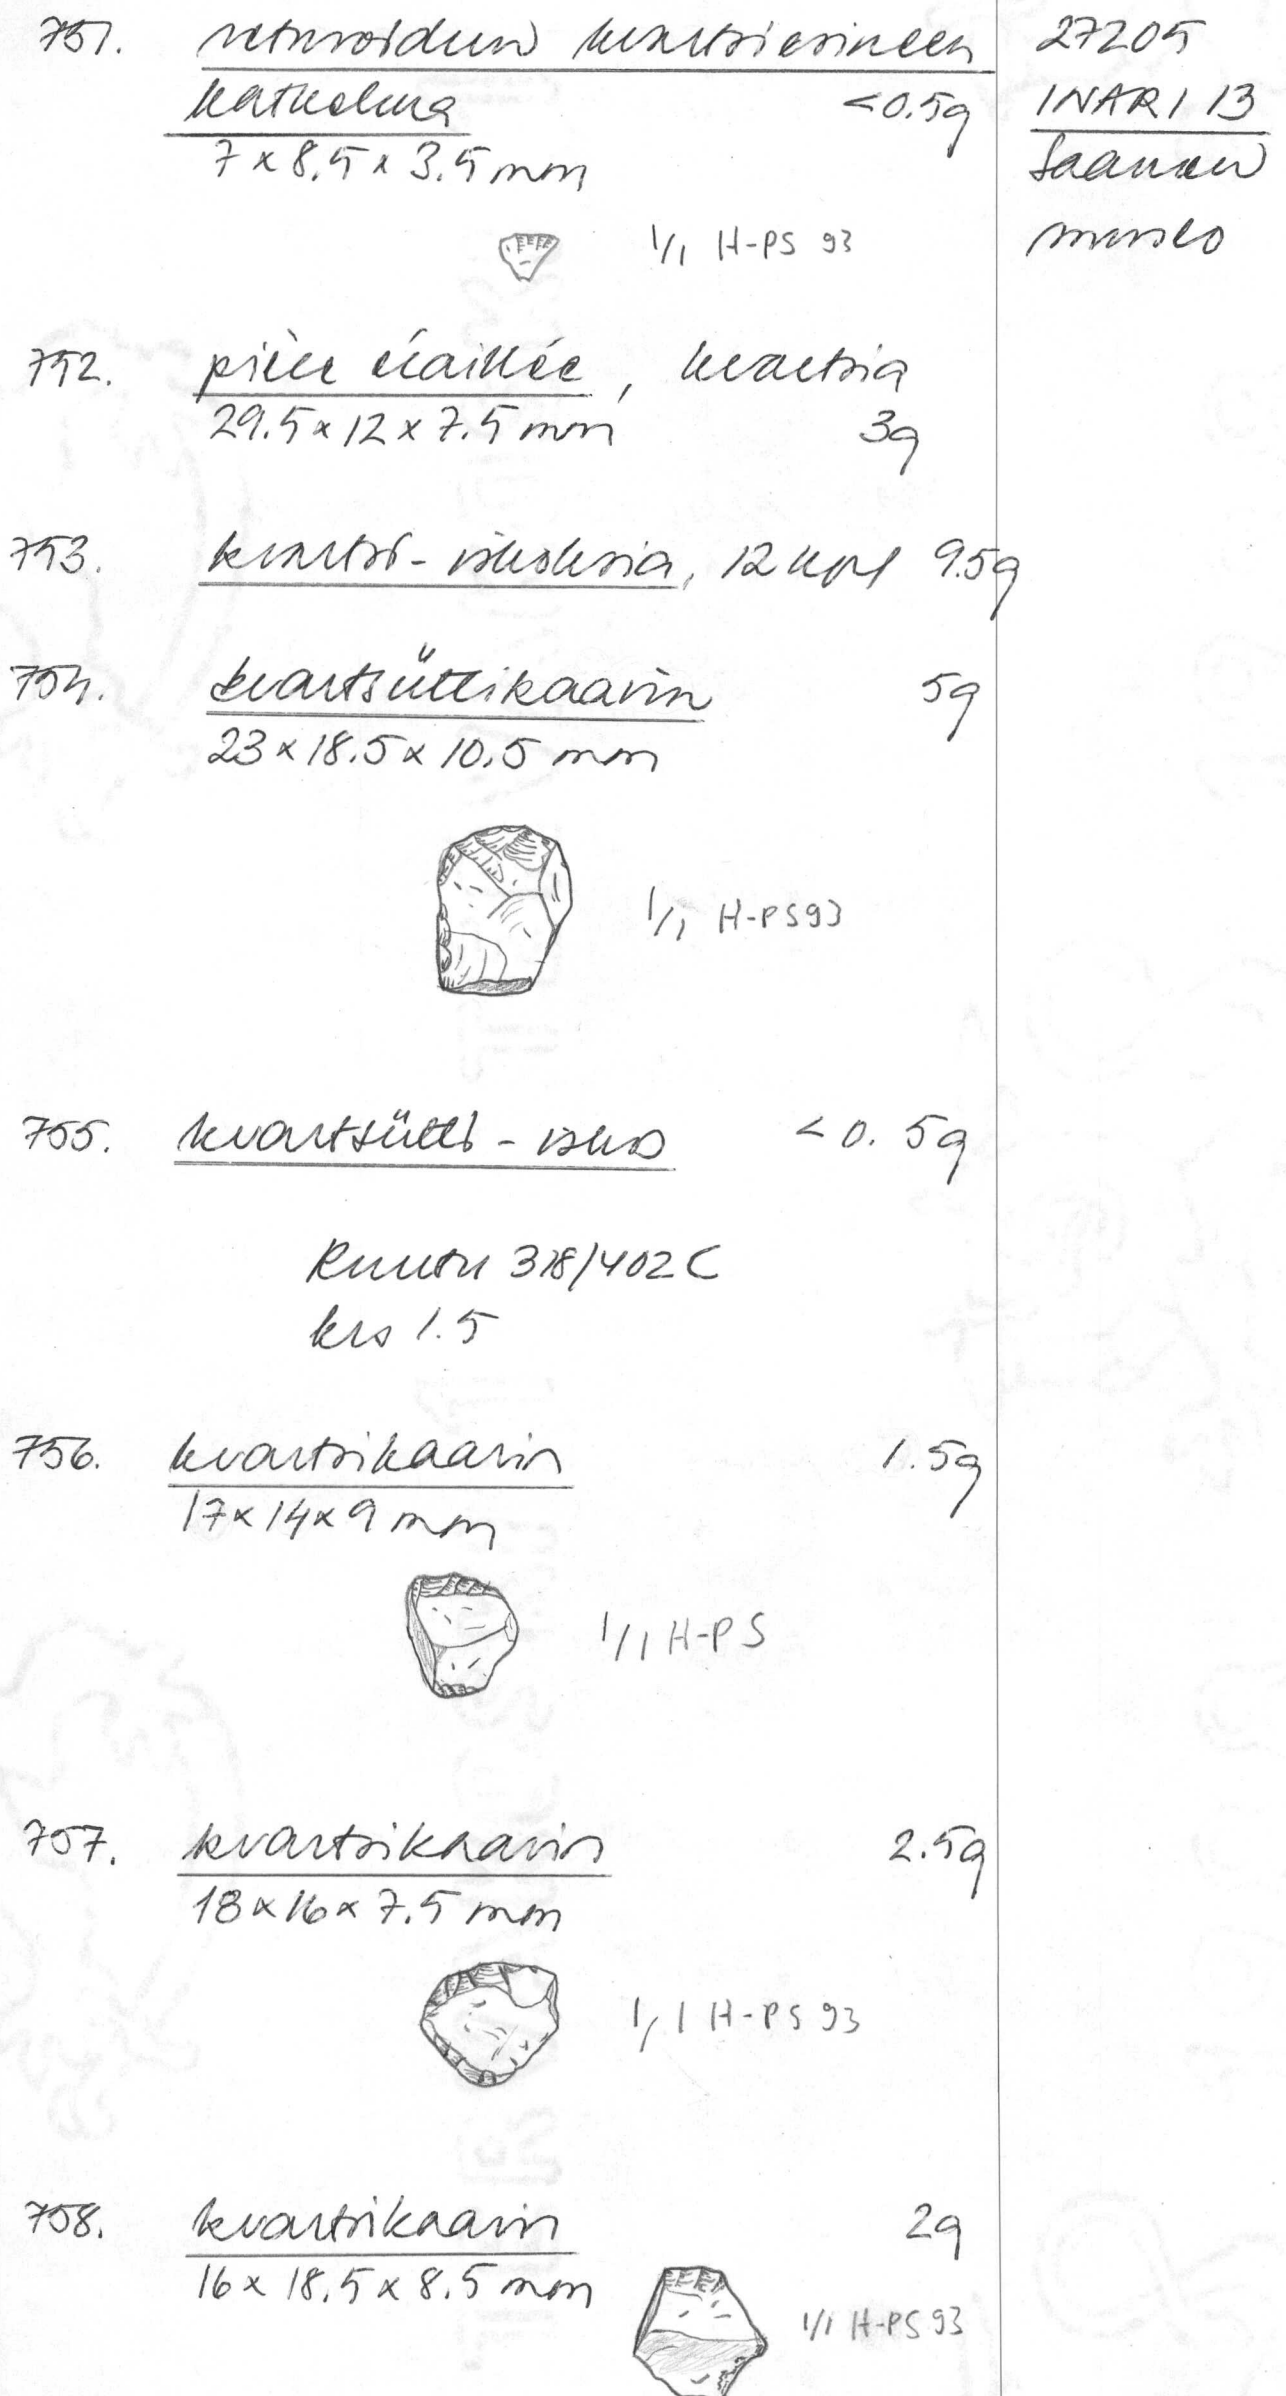 751. retusoidun kvartsiesineen
katkelma <0.5g
7 x 8.5 x 3.5 mm
1/1 H-PS 93
27205
INARI 13
Saamen
museo
752. pièce écaillée, kvartsia
29.5 x 12 x 7.5 mm 3g
753. kvartsi-iskoksia, 12 kpl 9.5g
754. kvartsiittikaavin 5g
23 x 18.5 x 10.5 mm
1/1 H-PS 93
755. kvartsiitti-iskos <0.5g
Ruutu 318/402 C
krs 1.5
756. kvartsikaavin 1.5g
17 x 14 x 9 mm
1/1 H-PS
757. kvartsikaavin 2.5g
18 x 16 x 7.5 mm
1/1 H-PS 93
758. kvartsikaavin 2g
16 x 18.5 x 8.5 mm
1/1 H-PS 93